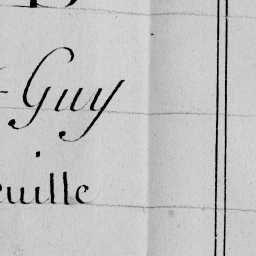 -Guy
euille